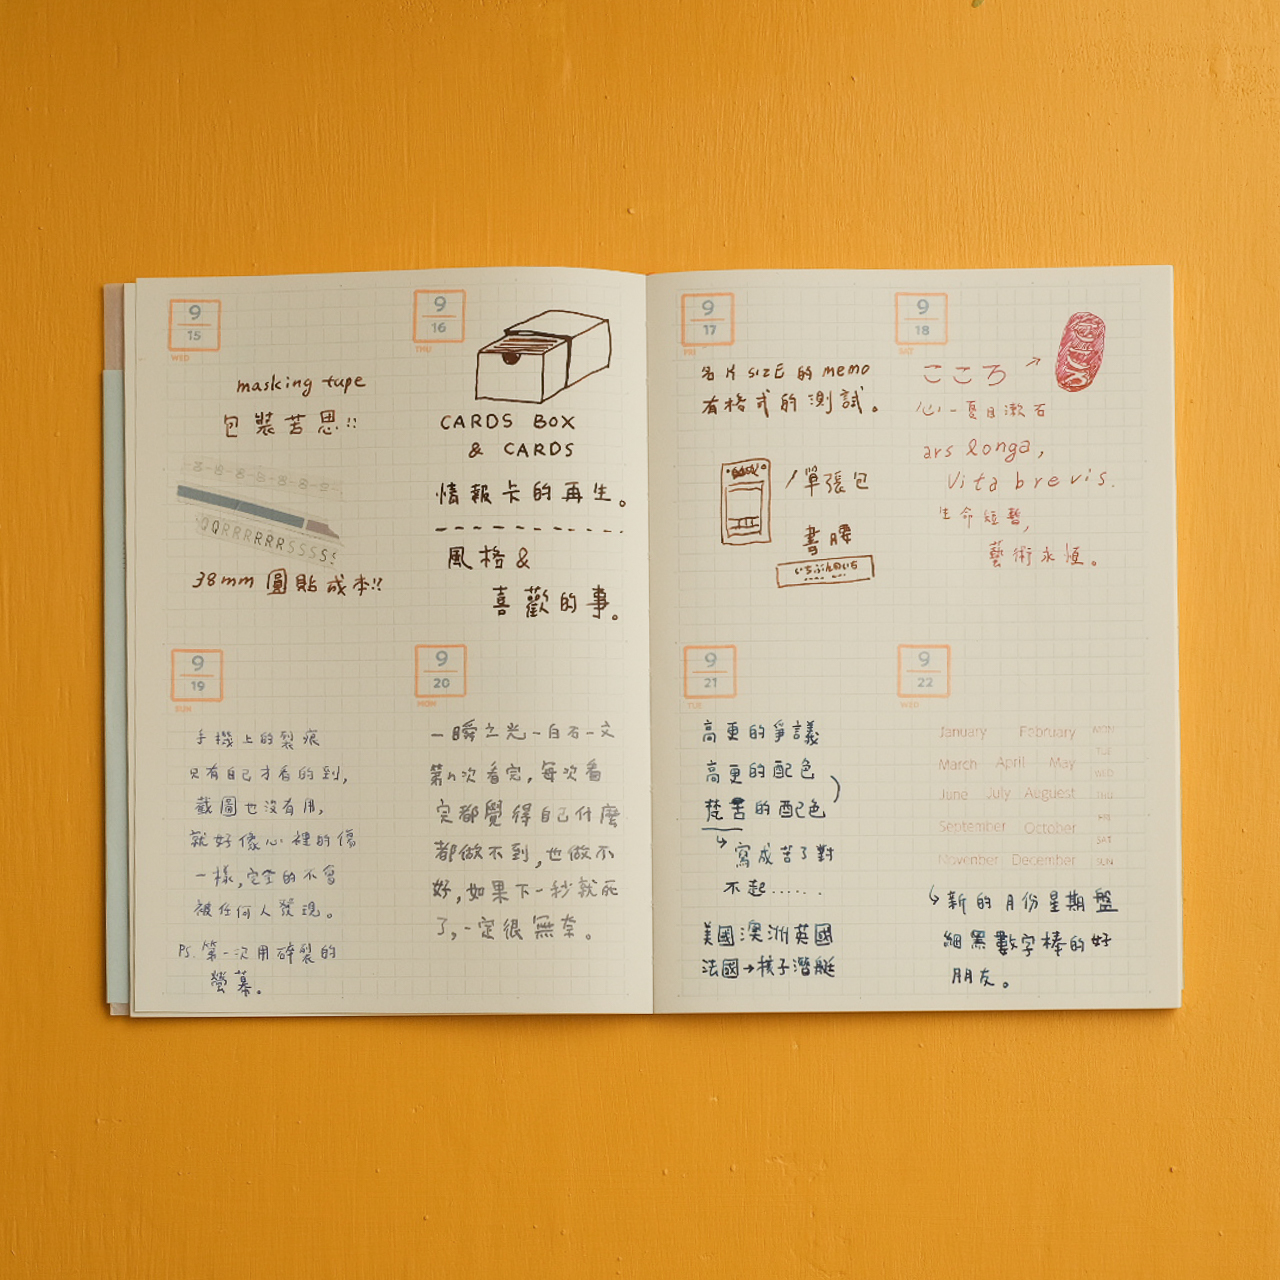 9
15
WED
masking tape
包裝苦思!!
QQRRRRRRSSSSS
38mm 圓貼成本!!
9
16
THU
CARDS BOX
& CARDS
情報卡的再生。
風格&
喜歡的事。
9
17
FRI
名片 SIZE 的 memo
有格式的測試。
單張包
書腰
いちぶんのいち
9
18
SAT
こころ
こころ
心-夏目漱石
ars longa,
Vita brevis.
生命短暫,
藝術永恆。
9
19
SUN
手機上的裂痕
只有自己才看的到,
截圖也沒有用,
就好像心裡的傷
一樣,完全的不會
被任何人發現。
PS. 第一次用碎裂的
螢幕。
9
20
MON
一瞬之光-白石一文
第n次看完,每次看
完都覺得自己什麼
都做不到,也做不
好,如果下一秒就死
了,一定很無奈。
9
21
TUE
高更的爭議
高更的配色
梵書的配色
寫成苦了對
不起......
美國澳洲英國
法國→核子潛艇
9
22
WED
January February MON
TUE
March April May WED
June July Auguest THU
FRI
September October SAT
November December SUN
新的月份星期盤
細黑數字棒的好
朋友。